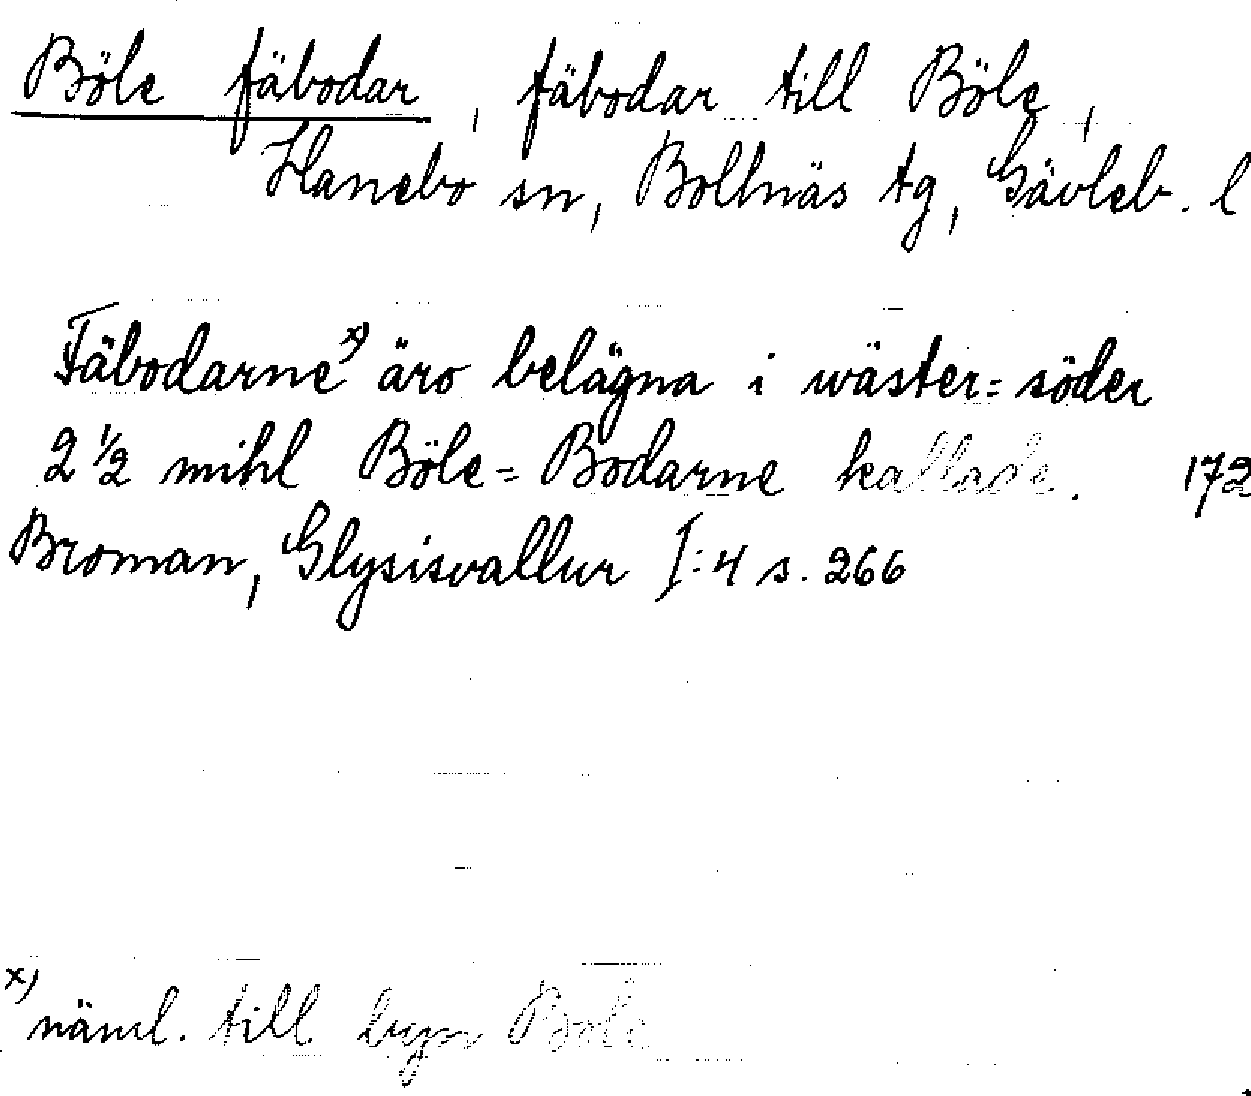 Böle fäbodar, fäbodar till Böle,
Hanebo sn, Bollnäs tg, Gävleb. l
Fäbodarne x) äro belägna i wäster= söder
2 1/2 mihl Böle= Bodarne kallade. 172
Broman, Glysisvallur I:4 s. 266
x) näml. till byn Böle